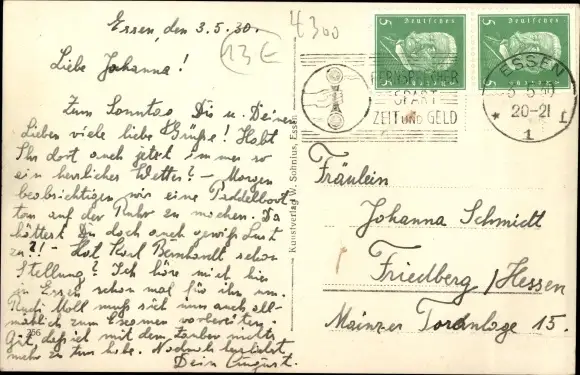 Essen, den 3.5.30.
4300
13€
Liebe Johanna!
Zum Sonntag Dir u. Deinen
Lieben viele liebe Grüße! Habt
Ihr dort auch jetzt immer so
ein herrliches Wetter? – Morgen
beabsichtigen wir eine Paddelboot
tour auf der Ruhr zu machen. Da
hättest Du doch auch gewiß Lust
zu?! – Hat Karl Bernhardt schon
Stellung? Ich höre mich hier
in Essen schon mal für ihn um.
Rudi Moll muß sich nun auch all-
mählich zum Examen vorbereiten
Gut, daß ich mit dem Zauber nichts
mehr zu tun habe. Nochmals herzlichst
Dein August.
256
Kunstverlag W. Sohnius, Essen
Deutsches Reich
5
5
Deutsches Reich
5
5
FERNSPRECHER
SPART
ZEIT UND GELD
ESSEN
3.5.30
20-21
* 1 f
Fräulein
Johanna Schmidt
Friedberg/Hessen
Mainzer Toranlage 15.